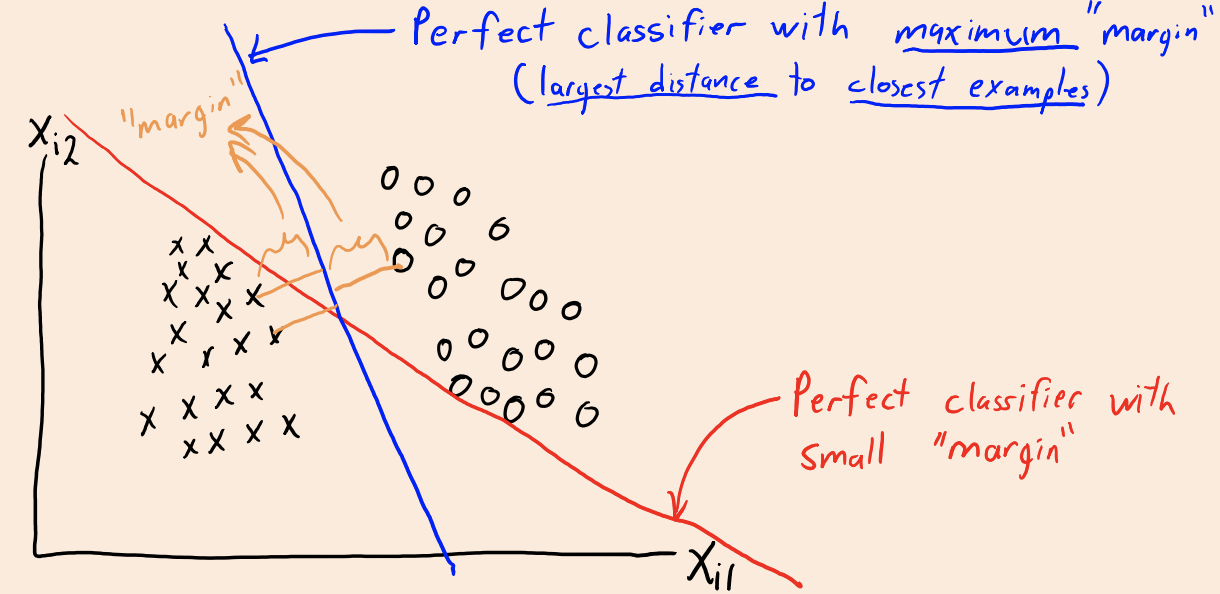 Perfect classifier with maximum "margin"
(largest distance to closest examples)
"margin"
Xi2
Perfect classifier with
small "margin"
Xi1